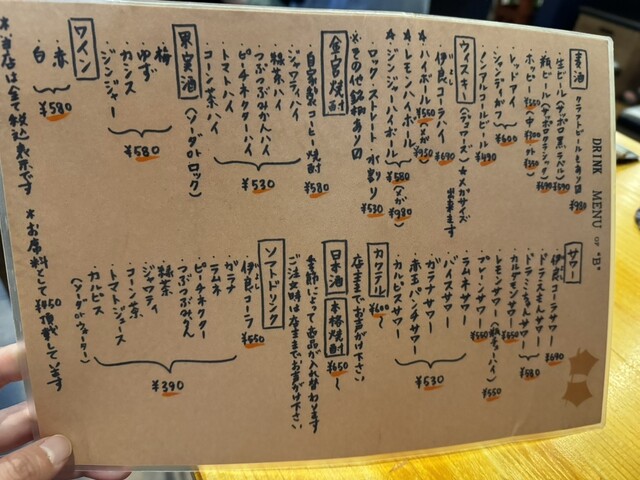 DRINK MENU OF "B"
麦酒 クラフトビールもあり〼 ¥980
生ビール(サッポロ黒ラベル) ¥590
瓶ビール(サッポロクラシック) ¥690
ホッピー ¥550 (中 ¥300 外 ¥350)
レッドアイ
シャンディガフ
¥600
ノンアルコールビール ¥490
ウィスキー (デュワーズ) *メガサイズ出来ます
伊良コーラハイ ¥690
*ハイボール ¥550 (メガ ¥950)
*レモンハイボール
*ジンジャーハイボール
¥580 (メガ ¥980)
ロック・ストレート・水割り ¥530
※その他銘柄あり〼
金宮焼酎
自家製コーヒー焼酎 ¥580
ジャワティハイ
緑茶ハイ
つぶつぶみかんハイ
ピーチネクターハイ
トマトハイ
コーン茶ハイ
¥530
果実酒 (ソーダorロック)
梅
ゆず
カシス
ジンジャー
¥580
ワイン
赤
白
¥580
*当店は全て税込表示です
サワー
伊良コーラサワー ¥690
ドラゴンサワー
ドラミちゃんサワー
¥580
カルデモンサワー ¥550
レモンサワー (瓶チューハイ) ¥550
プレーンサワー ¥550
ラムネサワー
バイスサワー
ガラナサワー
赤玉パンチサワー
カルピスサワー
¥530
カクテル ¥600〜
店主までお声がけ下さい
日本酒 本格焼酎 ¥650〜
季節によって商品が入れ替わります
ご注文時は店主までお声がけ下さい
ソフトドリンク
伊良コーラ ¥550
ガラナ
ラムネ
ピーチネクター
つぶつぶみかん
緑茶
ジャワティ
コーン茶
トマトジュース
カルピス
(ソーダorウォーター)
¥390
*お席料として¥450頂戴しています